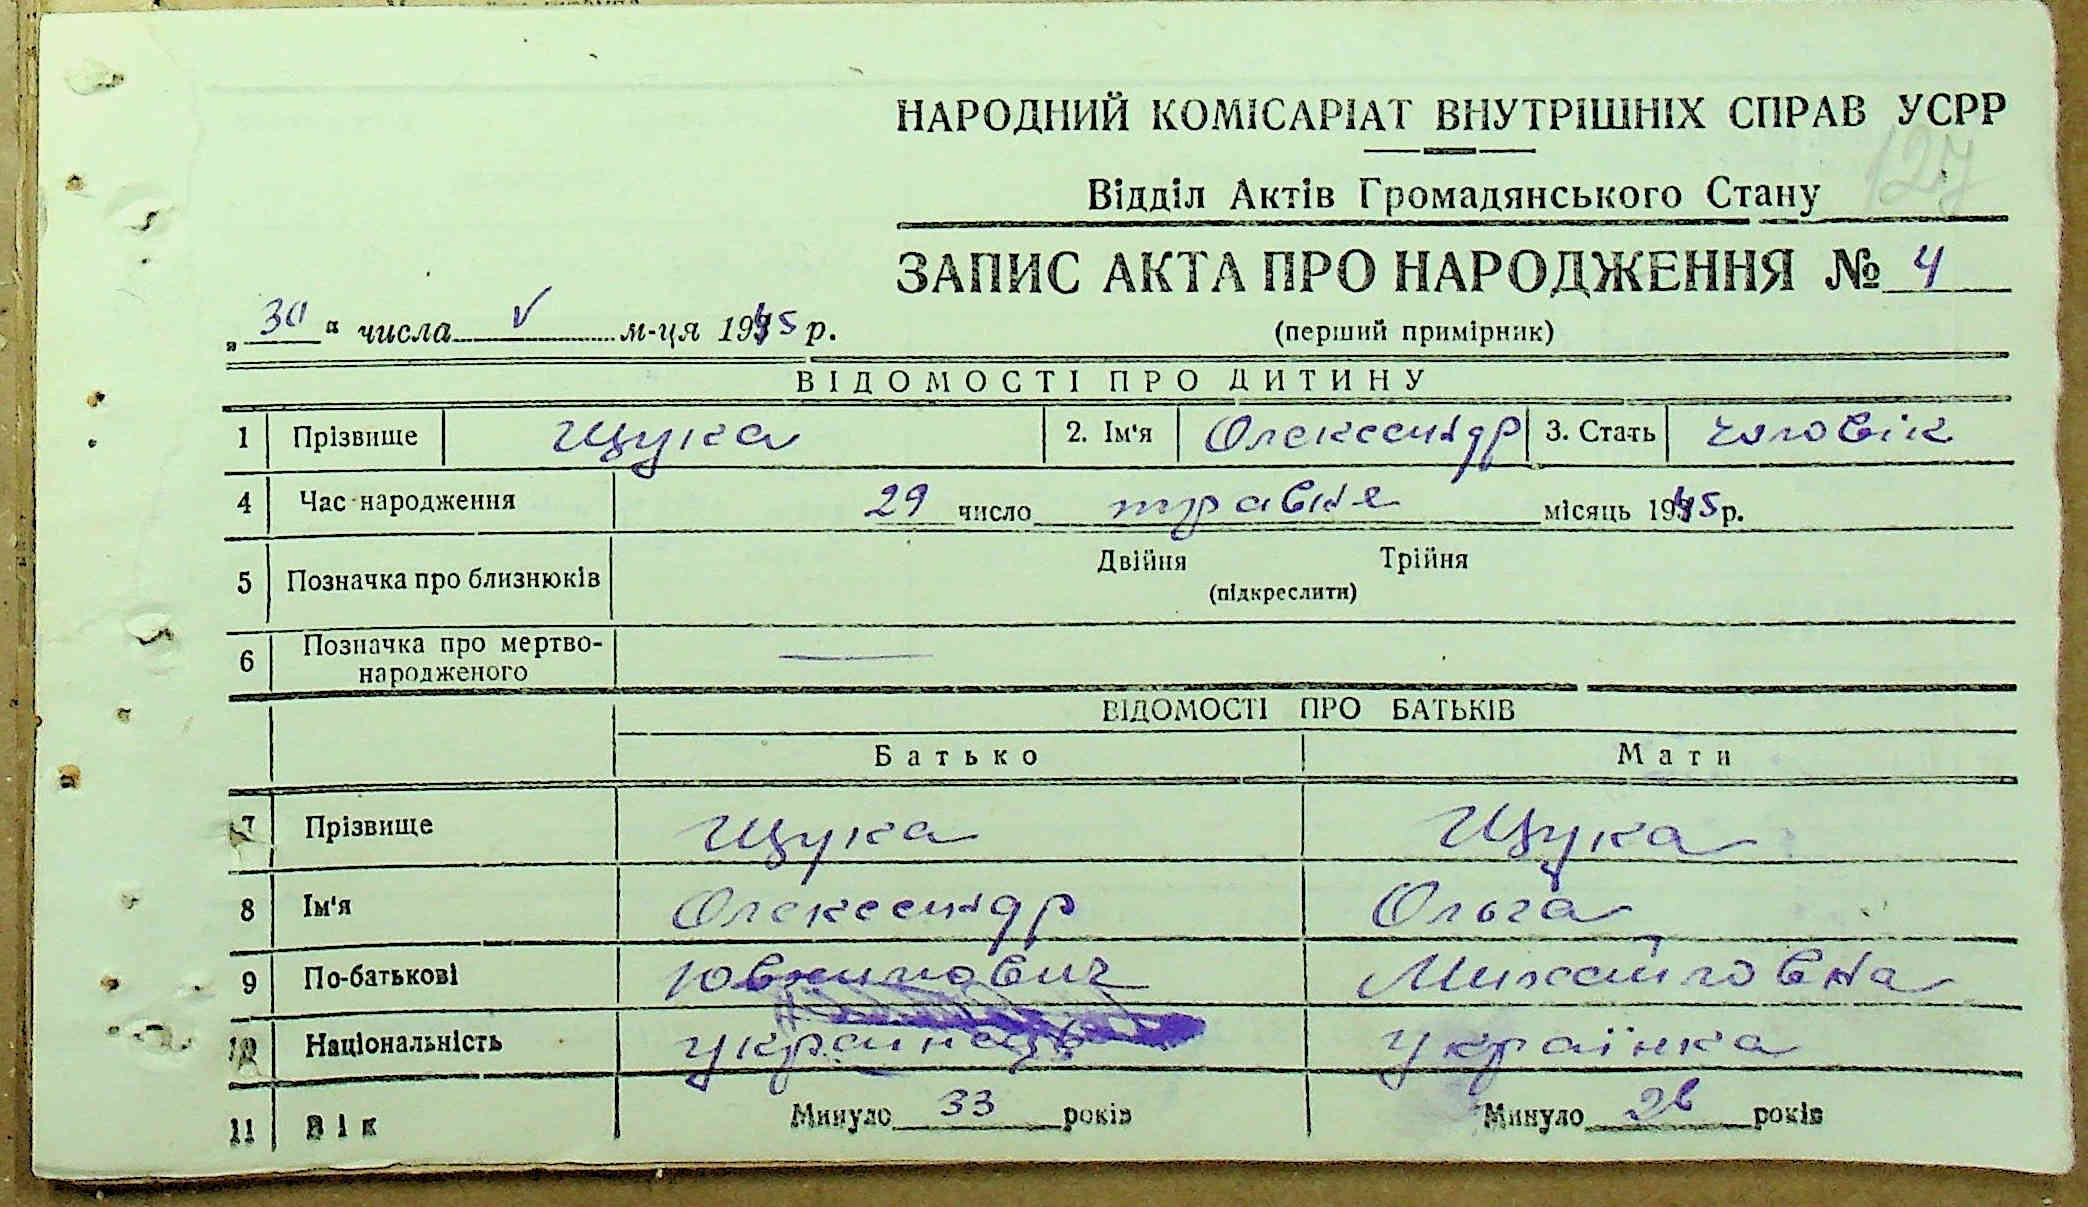 НАРОДНИЙ КОМІСАРІАТ ВНУТРІШНІХ СПРАВ УСРР
127
Відділ Актів Громадянського Стану
ЗАПИС АКТА ПРО НАРОДЖЕННЯ № 4
„30" числа V м-ця 1945 р.
(перший примірник)
ВІДОМОСТІ ПРО ДИТИНУ
1 Прізвище Щука 2. Ім'я Олександр 3. Стать чоловік
4 Час народження 29 число травня місяць 1945 р.
Двійня Трійня
5 Позначка про близнюків
(підкреслити)
6 Позначка про мертво-
народженого —
ВІДОМОСТІ ПРО БАТЬКІВ
Батько Мати
7 Прізвище Щука Щука
8 Ім'я Олександр Ольга
9 По-батькові Михайловна
10 Національність українець українка
11 Вік Минуло 33 років Минуло 26 років